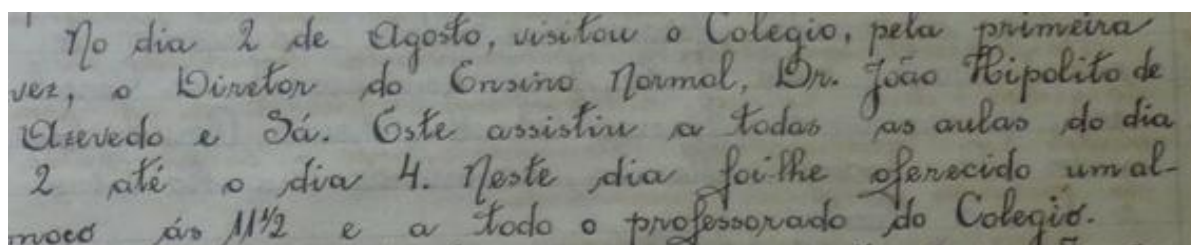 No dia 2 de Agosto, visitou o Colegio, pela primeira
vez, o Diretor do Ensino Normal, Dr. João Hipolito de
Azevedo e Sá. Este assistiu a todas as aulas do dia
2 até o dia 4. Neste dia foi-lhe oferecido um al-
moço ás 11½ e a todo o professorado do Colegio.